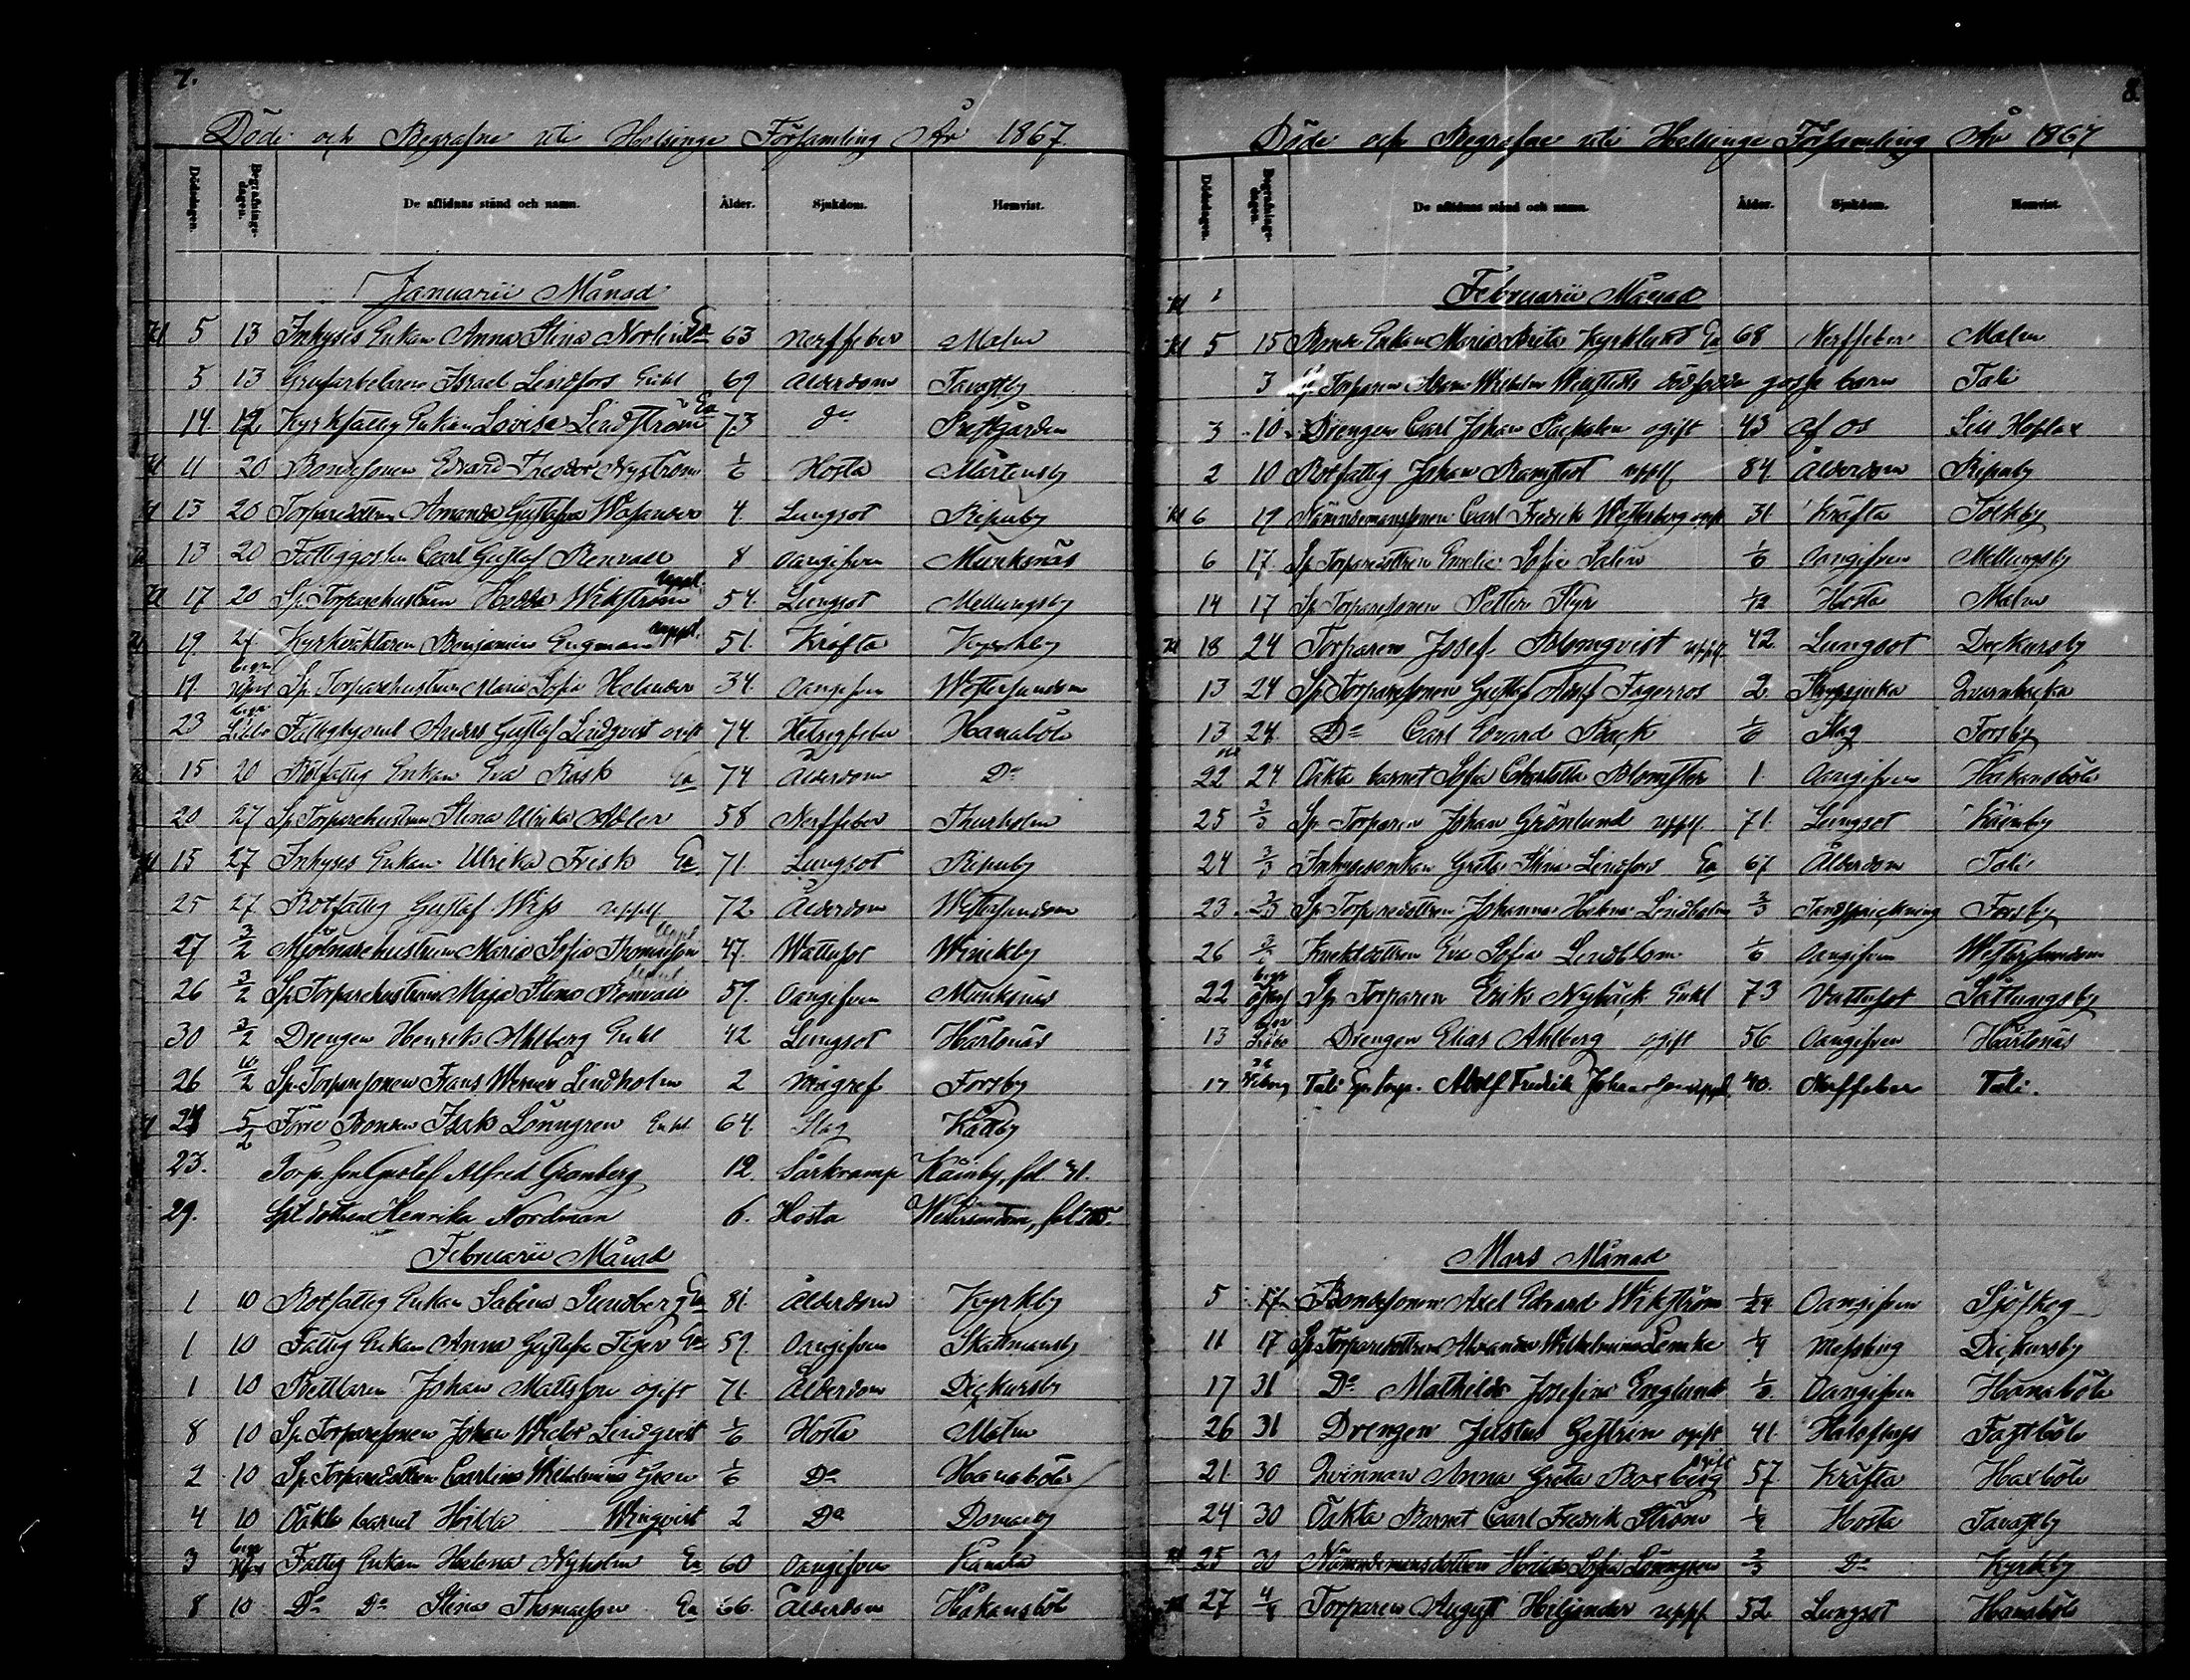 7.
Döde och Begrafne uti Helsinge Församling År 1867.
Dödsdagen. Begrafnings-dagen. De aflidnas stånd och namn. Ålder. Sjukdom. Hemvist.
Januarii Månad
5 13 Inhyses Enkan Anna Stina Norlin Ea 63 Nerffeber Malm
5 13 Grufarbetaren Israel Lindfors Enkl 69 Ålderdom Tavastby
14 12 Kyrkfattig Enkan Lovisa Lindström Ea 73 do Prestgården
11 20 Bondesonen Edvard Theodor Nyström 1/6 Hosta Mårtensby
13 20 Torparedottren Amanda Gustafva Wasander 4 Lungsot Ripuby
13 20 Fattiggossen Carl Gustaf Renvall 8 Oangifven Munksnäs
17 20 Sp. Torparehustrun Hedda Wikström uppl. 54. Lungsot Mellungsby
19 27 Kyrkväktaren Benjamin Engman uppl. 51. Kräfta Kyrkby
19. begr. Sp. Torparehustrun Maria Sofia Helander 34. Oangifven Westersundom
23 begr. Fattighjonet Anders Gustaf Lindqvist ogift 74. Hetsigfeber Hanaböle
15 20 Rotfattig Enkan Eva Rask Ea 74 Ålderdom Do
20 27 Sp. Torparehustrun Stina Ulrika Adler 58 Nerffeber Thurholm
15 27 Inhyses Enkan Ulrika Frisk Ea 71. Lungsot Ripuby
25 27 Rotfattig Gustaf Wiss uppl 72 Ålderdom Westersundom
27 3/2 Mjölnarehustrun Maria Sofia Thomasson uppl 47. Wattusot Winikby
26 3/2 Sp. Torparehustrun Maja Stina Renvall 59. Oangifven Munksnäs
30 3/2 Drengen Henrik Ahlberg Enkl 42 Lungsot Härtonäs
26 10/2 Sp. Torparesonen Frans Werner Lindholm 2 Forsby
24 5/2 Förre Bonden Isak Lönngren Enkl 64. Slag Kårby
23. Torp. son Gustaf Alfred Granberg 12. Kåinby, fol.
29. dottren Henrika Nordman 6. Hosta Westersundom, fol
Februarii Månad
1 10 Rotfattig Enkan Sabina Sundberg Ea 81. Ålderdom Kyrkby
1 10 Fattig Enkan Anna Gustafva Tiger Ea 59. Oangifven Skattmansby
1 10 Bettlaren Johan Mattsson ogift 71. Ålderdom Dickursby
8 10 Sp. Torparesonen Johan Victor Lindqvist 1/6 Hosta Malm
2 10 Sp. Torparedottren Carolina Wilhelmina Gran 1/6 Do Hanaböle
4 10 Oäkta barnet Hilda Winqvist 2 Do Domarby
3 begr Fattig Enkan Helena Nyholm Ea 60 Oangifven Kanala
8 10 Do Do Stina Thomasson Ea 66. Ålderdom Håkansböle
8.
Döde och Begrafne uti Helsinge Församling År 1867
Dödsdagen. Begrafnings-dagen. De aflidnas stånd och namn. Ålder. Sjukdom. Hemvist.
Februarii Månad
5 15 Enkan Maria Brita Kyrklund Ea 68 Nerffeber Malm
3 Sp. Torparen Adam Wilhelm dödfödda gosse barn Tali
3 10 Drengen Carl Johan ogift 43 af os Lill Hoplax
2 10 Rotfattig Johan uppl 84. Ålderdom Ripuby
6 17 Nämndemanssonen Carl Fredrik Wetterberg ogift 31 Kräfta Tolkby
6 17. Sp. Torparedottren Emelie Sofia Salin 1/6 Oangifven Mellungsby
14 17 Sp. Torparesonen Petter Styr 1/12 Hosta Malm
18 24 Torparen Josef Blomqvist uppl. 42. Lungsot Dickursby
13 24 Sp. Torparesonen Gustaf Adolf Fagerroos 2. Strypsjuka Qvarnbacka
13 24. Do Carl Edvard Back 1/6 Slag Forsby
22 24 Oäkta barnet Sofia Charlotta Blomster 1. Oangifven Håkansböle
25 3/3 Sp. Torparen Johan Grönlund uppl. 71. Lungsot Kåinby
24 3/3 Inhysesenkan Greta Stina Lindfors Ea 67 Ålderdom Tali
23 3/3 Sp. Torparedottren Johanna Helena Lindholm 2/3 Tandsprickning Forsby
26 Knektdottren Eva Sofia Lindblom 1/6 Oangifven Westersundom
22 begr Sp. Torparen Erik Nybäck Enkl 73 Vattusot Sättungsby
13 begr Drengen Elias Ahlberg ogift 56 Oangifven Härtonäs
17 Tali Adolf Fredrik Johansson uppl. 40. Nerffeber Tali.
Mars Månad
5 Bondesonen Axel Edvard Wikström 1/24 Oangifven Sjöskog
11 17 Sp. Torparedottren Alexandra Wilhelmina Lemke 1/4 Messling Dickursby
17 31 Do Mathilda Josefina Englund Oangifven Hanaböle
26 31 Drengen Justus Gestrin ogift 41. Halsfluss Fastböle
21 30 Qvinnan Anna Greta Boxberg ogift 57. Kräfta Haxböle
24 30 Oäkta Barnet Carl Fredrik Ström 1/4 Hosta Tavastby
25 30 Nämndemansdottren Hilda Sofia Lönngren 2/3 Do Kyrkby
27 4/4 Torparen August Heljander uppl 52 Lungsot Hanaböle